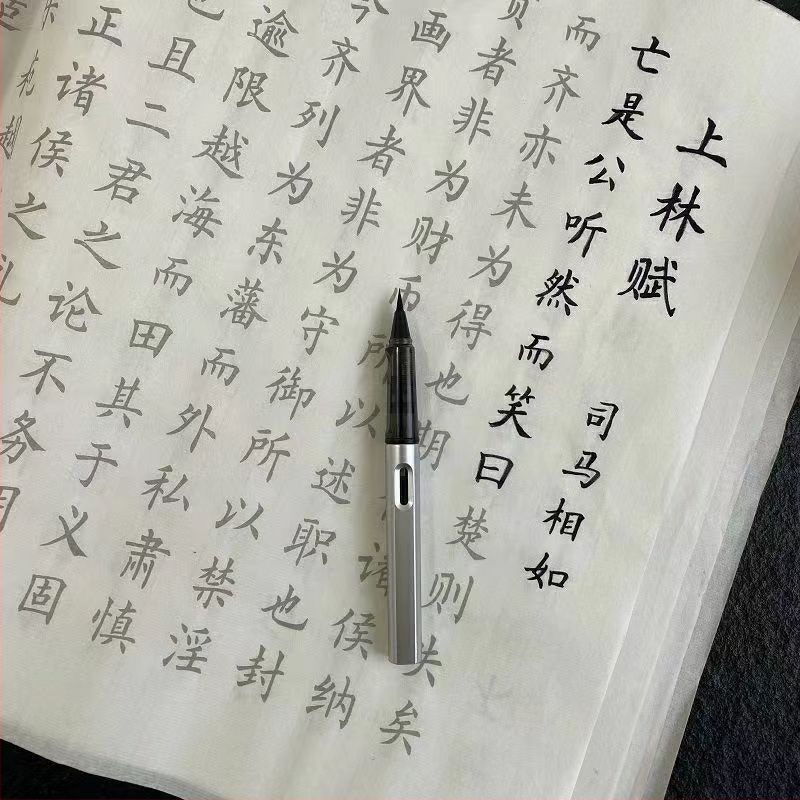 上林赋 司马相如
亡是公听然而笑曰楚则失矣
而齐亦未为得也期诸侯纳
贡者非为财币所以述职也封
画界者非为守御所以禁淫
今齐列为东藩而外私肃慎
逾限越海而田其于义固
也且二君之论不务
正诸侯之礼